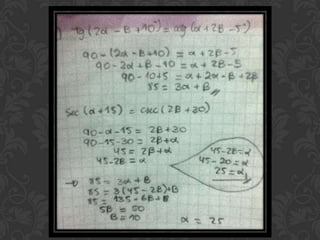 ) tg(2α - B + 10°) = ctg(α + 2B - 5°)
90 - (2α - B + 10) = α + 2B - 5
90 - 2α + B - 10 = α + 2B - 5
90 - 10 + 5 = α + 2α - B + 2B
85 = 3α + B //
sec(α + 15) = csc(2B + 30)
90 - α - 15 = 2B + 30
90 - 15 - 30 = 2B + α
45 = 2B + α
45 - 2B = α
45 - 2B = α
45 - 20 = α
25 = α //
→ 85 = 3α + B
85 = 3(45 - 2B) + B
85 = 135 - 6B + B
5B = 50
B = 10
α = 25